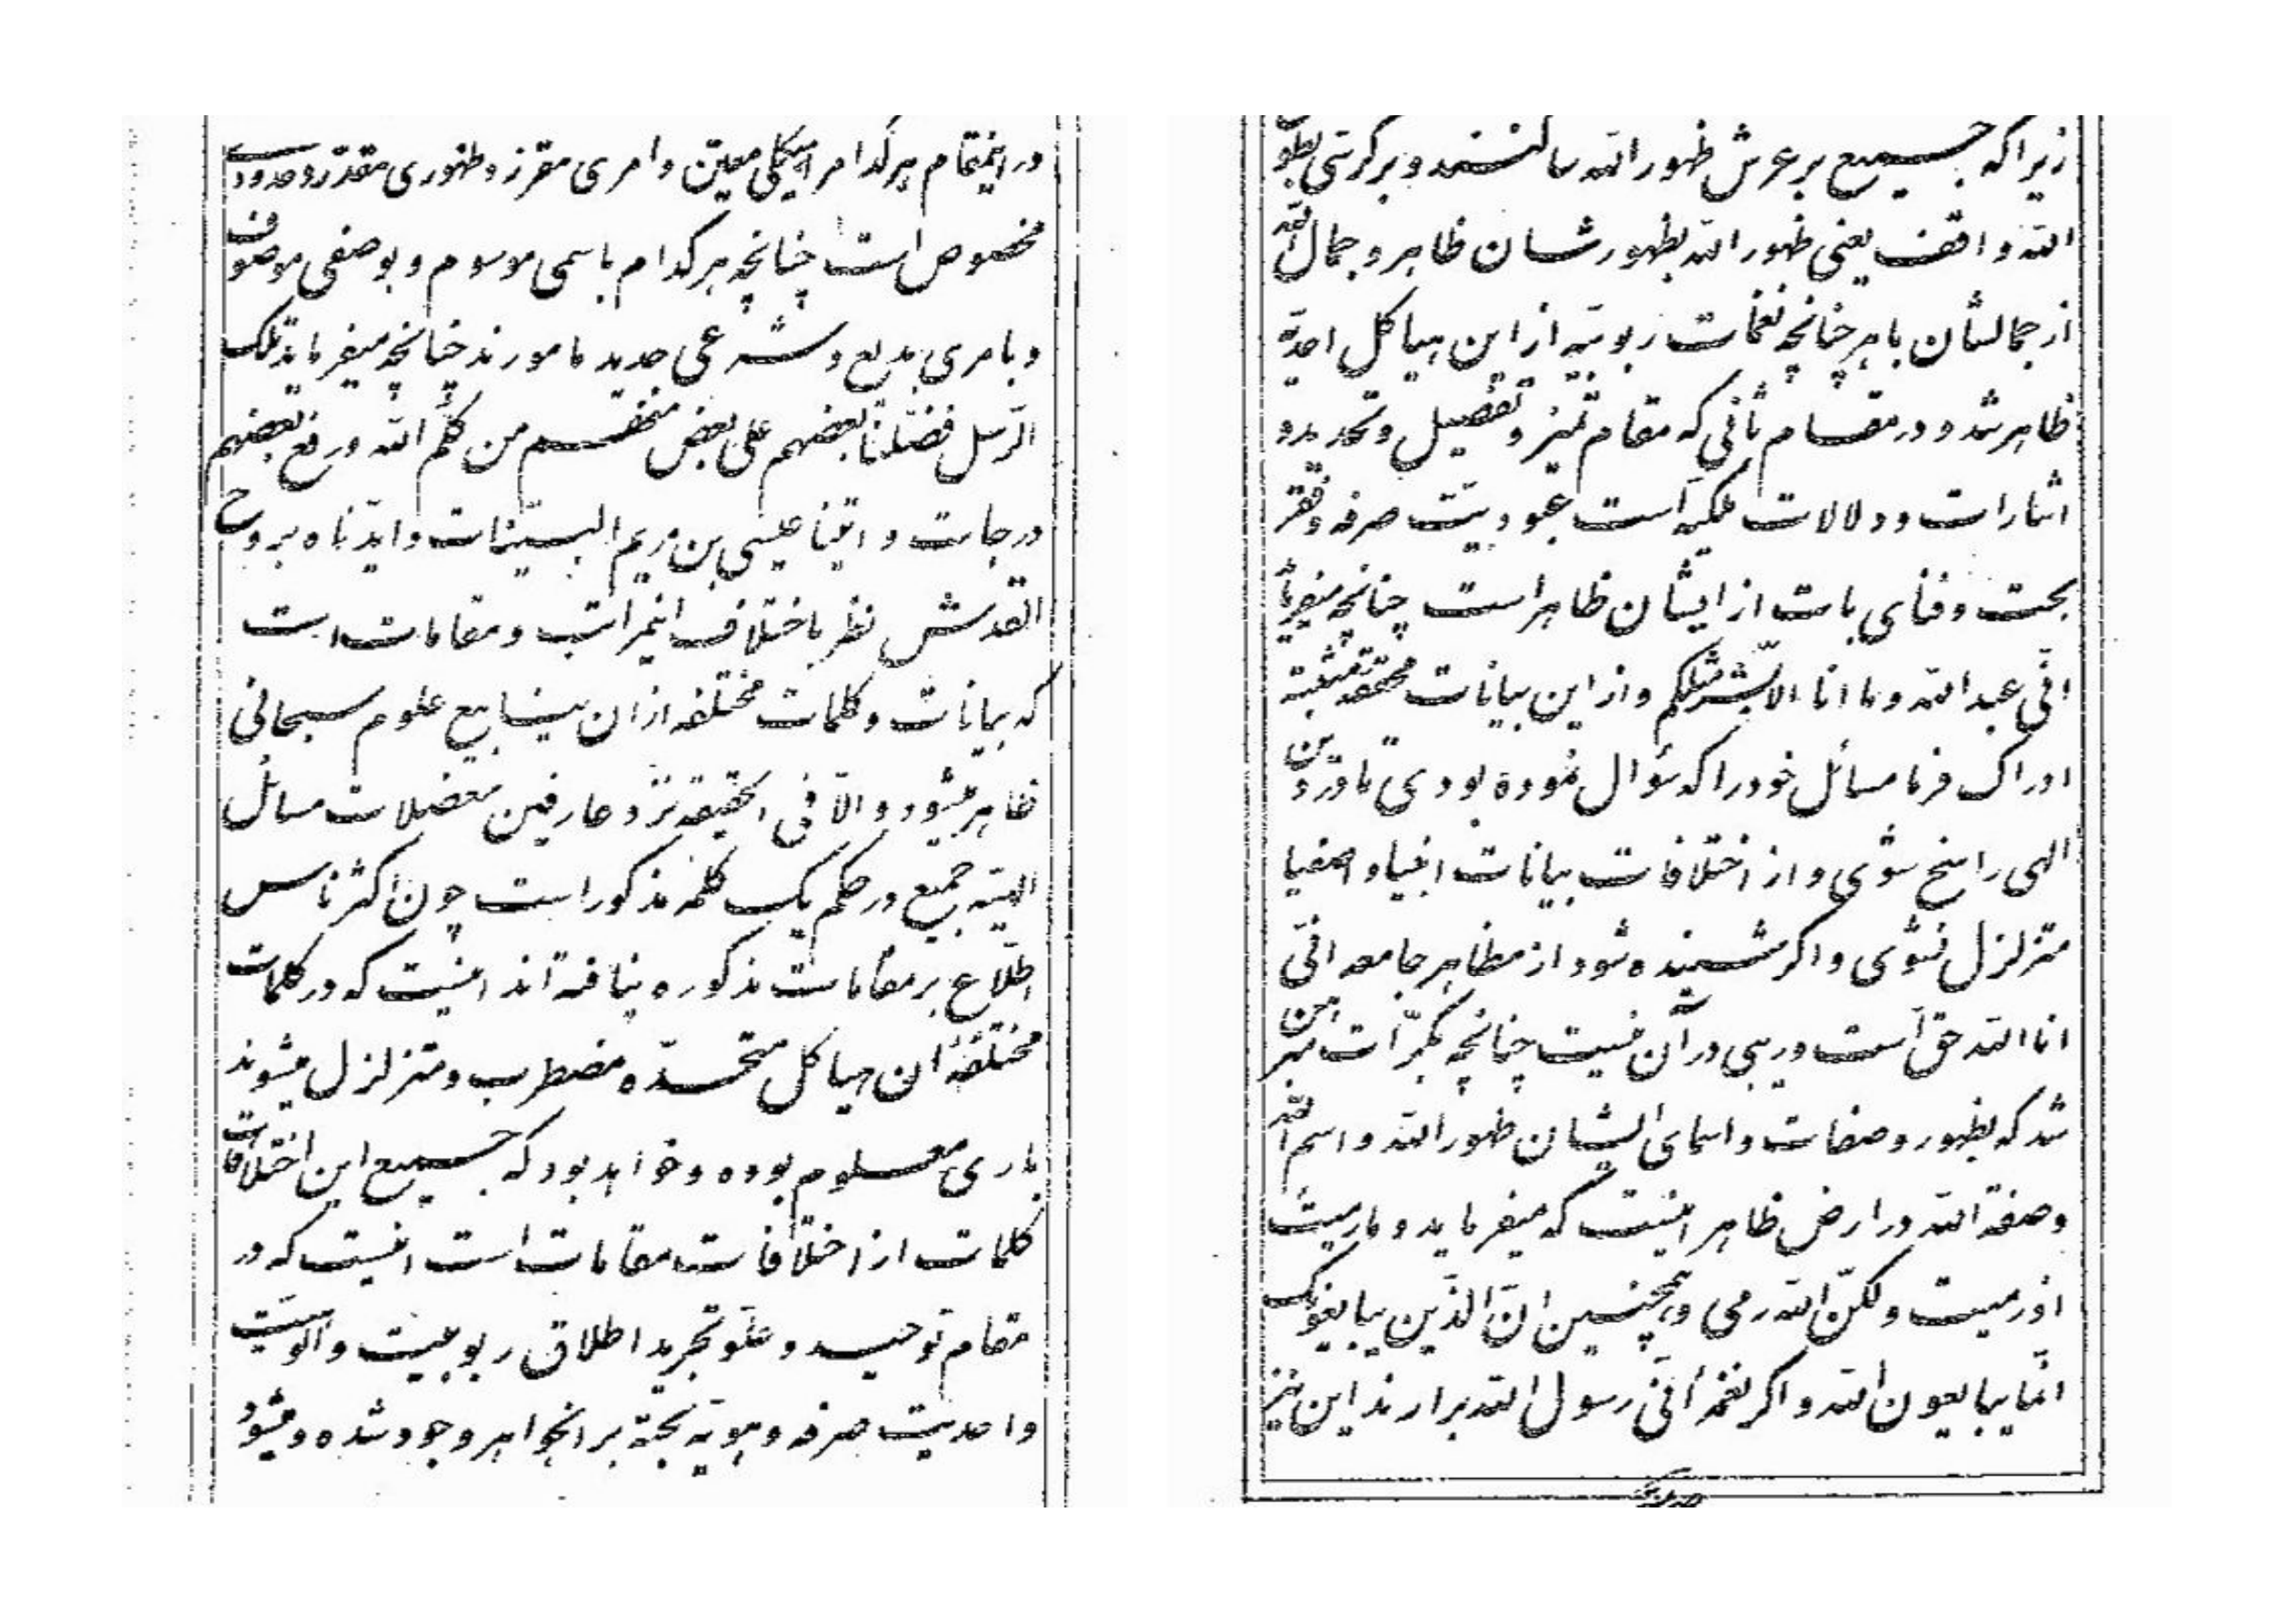 در اینمقام هر کدام را هیکلی معیّن و امری مقرّر و ظهوری مقدّر و حدودی
مخصوص است چنانچه هر کدام باسمی موسوم و بوصفی موصوف
و بامری بدیع و شرعی جدید مامورند چنانچه میفرماید تلک
الرّسل فضّلنا بعضهم علی بعض منهم من کلّم الله و رفع بعضهم
درجات و اتینا عیسی بن مریم البیّنات و ایّدناه بروح
القدس نظر باختلاف اینمراتب و مقامات است
که بیانات و کلمات مختلفه از ان ینابیع علوم سبحانی
ظاهر میشود و الّا فی الحقیقه نزد عارفین معضلات مسائل
الهیّه جمیع در حکم یک کلمه مذکور است چون اکثر ناس
اطّلاع بر مقامات مذکوره نیافته‌اند اینست که در کلمات
مختلفهٔ ان هیاکل متّحده مضطرب و متزلزل میشوند
باری معلوم بوده و خواهد بود که جمیع این اختلافات
کلمات از اختلافات مقامات است اینست که در
مقام توحید و علوّ تجرید اطلاق ربوبیت و الوهیّت
و احدیّت صرفه و هویّه بحته بر انجواهر وجود شده و میشود
زیرا که جمیع بر عرش ظهور الله ساکنند و بر کرسی بطون
الله واقف یعنی ظهور الله بظهورشان ظاهر و جمال الله
از جمالشان باهر چنانچه نغمات ربوبیّه از این هیاکل احدیّه
ظاهر شد و در مقام ثانی که مقام تمیز و تفصیل و تحدید و
اشارات و دلالات ملکیّه است عبودیّت صرفه و فقر
بحت و فنای بات از ایشان ظاهر است چنانچه میفرماید
انّی عبد الله و ما انا الّا بشر مثلکم و از این بیانات محقّقه مثبته
ادراک فرما مسائل خود را که سؤال نموده بودی تا در دین
الهی راسخ شوی و از اختلافات بیانات انبیا و اصفیا
متزلزل نشوی و اگر شنیده شود از مظاهر جامعه انّی
انا الله حق است و ریبی در آن نیست چنانچه بکرّات مبرهن
شد که بظهور و صفات و اسمای ایشان ظهور الله و اسم الله
و صفة الله در ارض ظاهر اینست که میفرماید و ما رمیت
اذ رمیت و لکنّ الله رمی و همچنین انّ الذین یبایعونک
انّما یبایعون الله و اگر نغمهٔ انّی رسول الله برارند این نیز